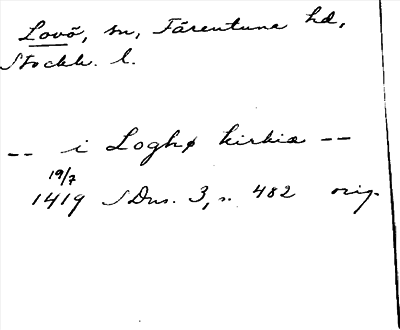 Lovö, sn, Färentuna hd,
Stockh. l.
-- i Loghø kirkia --
19/7
1419 SDns. 3, s. 482 orig.